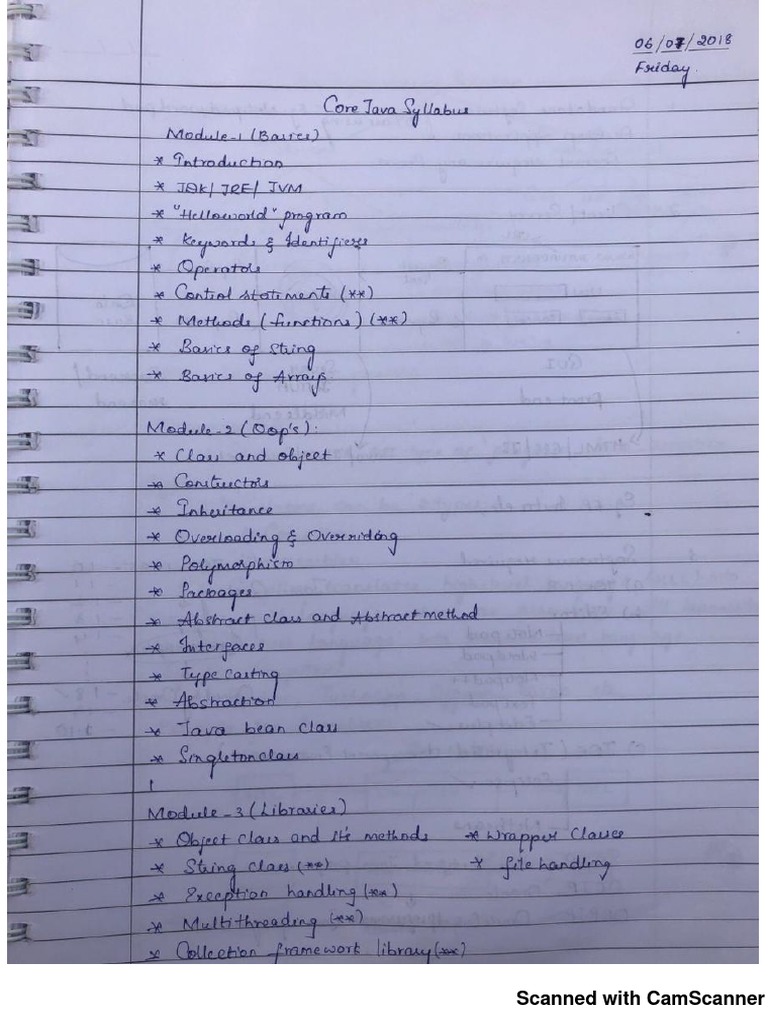 06/07/2018
Friday.
Core Java Syllabus
Module-1 (Basics)
* Introduction
* JDK/ JRE/ JVM
* "Helloworld" program
* Keywords & Identifiers
* Operators
* Control statements (**)
* Methods (functions) (**)
* Basics of String
* Basics of Arrays
Module-2 (Oop's):
* Class and object
* Constructors
* Inheritance
* Overloading & Overriding
* Polymorphism
* Packages
* Abstract class and Abstract method
* Interfaces
* Type casting
* Abstraction
* Java bean class
* Singleton class
Module-3 (Libraries)
* Object class and its methods * Wrapper Classes
* String class (**) * file handling
* Exception handling (**)
* Multithreading (**)
* Collection framework library (**)
Scanned with CamScanner